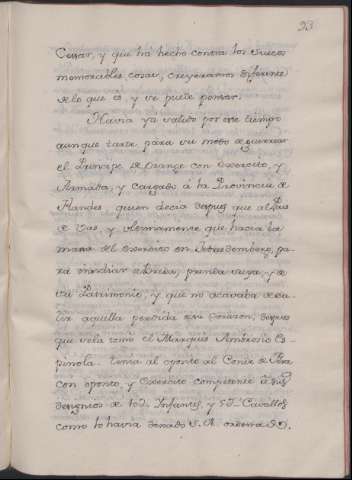 93
Cessar, y que há hecho contra los Suecos
memorables cosas, creyeramos diferente
de lo que es, y se puede pensar.
Havia ya salido por ese tiempo
aunque tarde para su modo de guerrear
el Principe de Orange con exercito, y
Armada, y cargado á la Provincia de
Flandes, quien decia despues que al Pais
de Vas, y ultimamente que hacia la
masa del exercito en pa-
ra sitiar á Breda, prenda suya, y de
su Patrimonio, y que no acavava de sa-
lir aquella perdida de su corazon, despues
que vela tomó el Marques Ambrosio Es-
pinola. tenia al oposito al Conde de
con oposito, y Exercito competente á sus
designios de 10 Infantes, y 5 Cavallos
como lo havia deseado S. A.